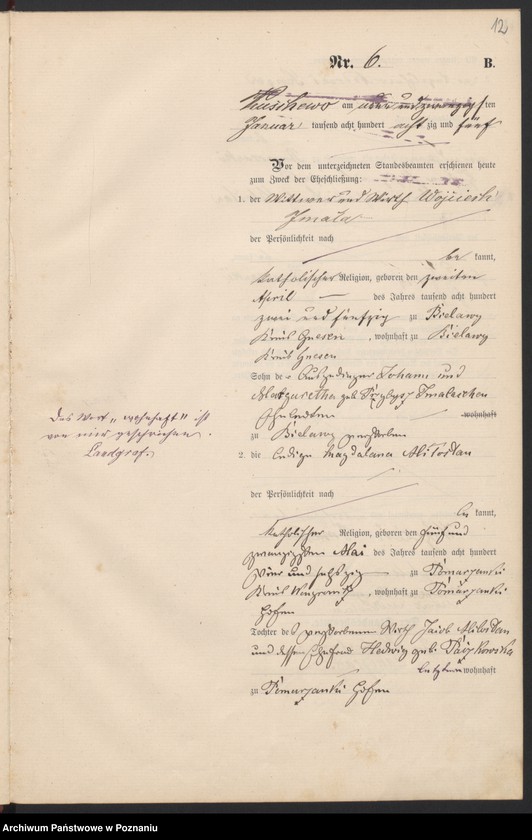 12
Nr. 6. B.
am acht und zwanzigsten
Januar tausend acht hundert acht zig und fünf
Vor dem unterzeichneten Standesbeamten erschienen heute
zum Zweck der Eheschließung:
1. der Wittwer und Wirth Wojciech
der Persönlichkeit nach
be kannt,
katholischer Religion, geboren den zweiten
April des Jahres tausend acht hundert
zwei und fünfzig zu Bielawy
Kreis Gnesen, wohnhaft zu Bielawy
Kreis Gnesen
Sohn der Johann und
Margaretha geb.
Eheleuten wohnhaft
zu Bielawy verstorben
Das Wort „wohnhaft" ist
von mir gestrichen.
Landgraf.
2. die ledige Magdalena
der Persönlichkeit nach
be kannt,
katholischer Religion, geboren den fünf und
zwanzigsten Mai des Jahres tausend acht hundert
vier und sechszig zu
Kreis Wongrowitz, wohnhaft zu
Tochter des verstorbenen Wirth Jacob
und dessen Ehefrau Hedwig geb.
letztere wohnhaft
zu
Archiwum Państwowe w Poznaniu